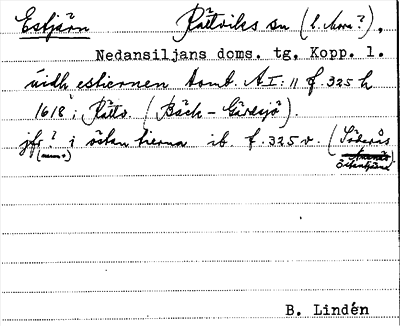 Estjärn Rättviks sn (l. Mora?),
Nedansiljans doms. tg, Kopp. l.
uidh estiernen Domb. A I: 11 f. 325 h
1618; Rättv. (Bäck - Gärdsjö).
jfr? i östen tierna ib f. 325 v. (Söderås
(numr)
Östentjärn)
B. Lindén